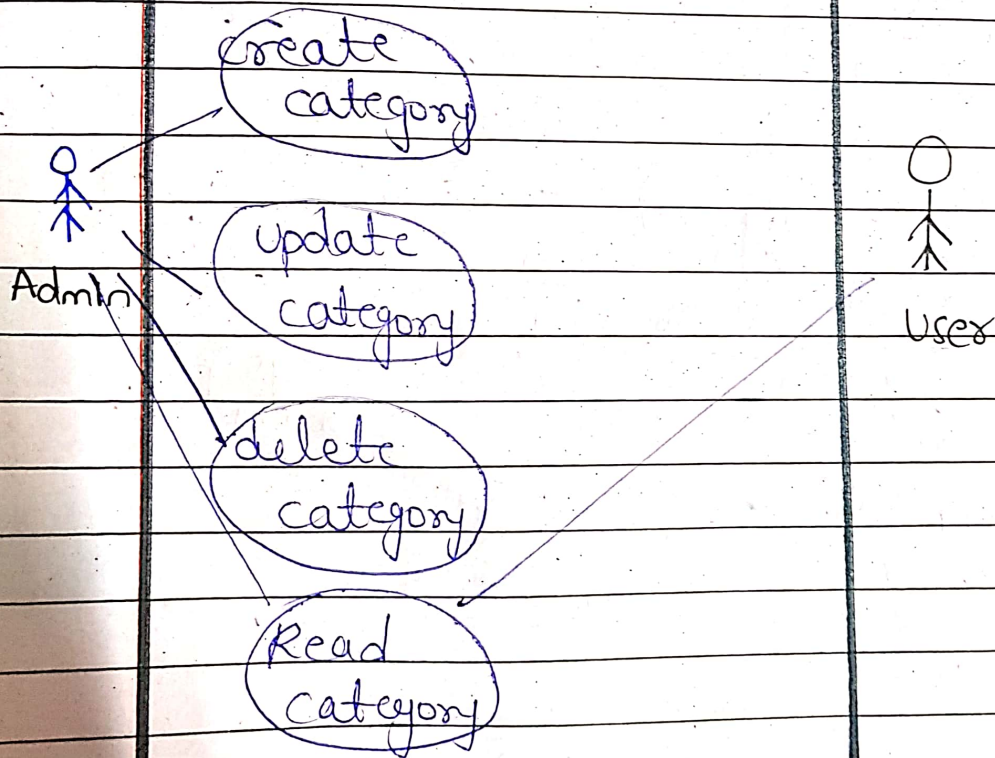 create
category
update
category
Admin
User
delete
category
Read
category